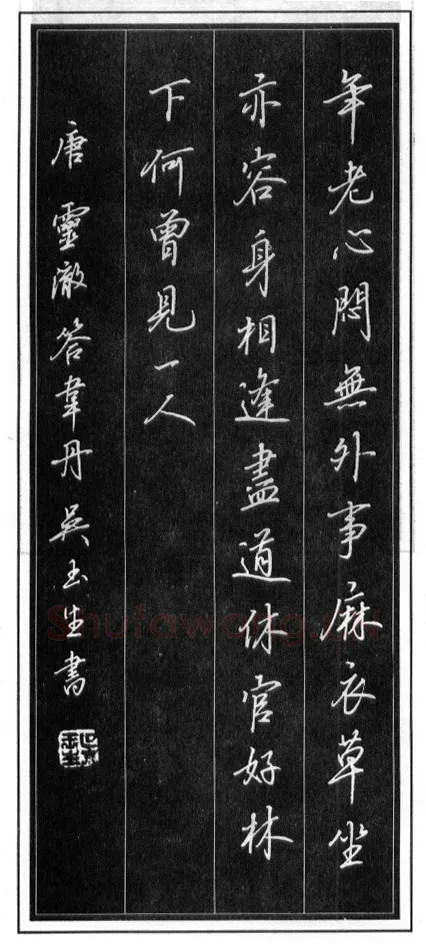 年老心悶無外事麻衣草坐
亦容身相逢盡道休官好林
下何曾見一人
唐靈澈答韋丹吳玉生書